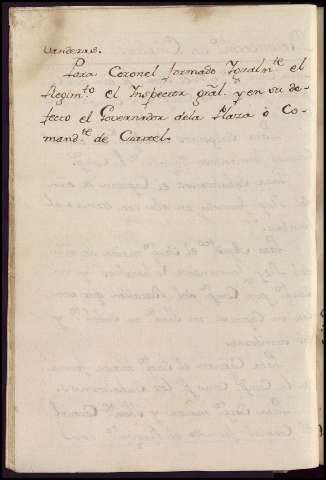 vanderas.
Para Coronel formado Igualm.te el
Regim.to el Inspector gral. y en su de-
fecto el Governador dela Plaza ò Co-
mand.te de Quartel.